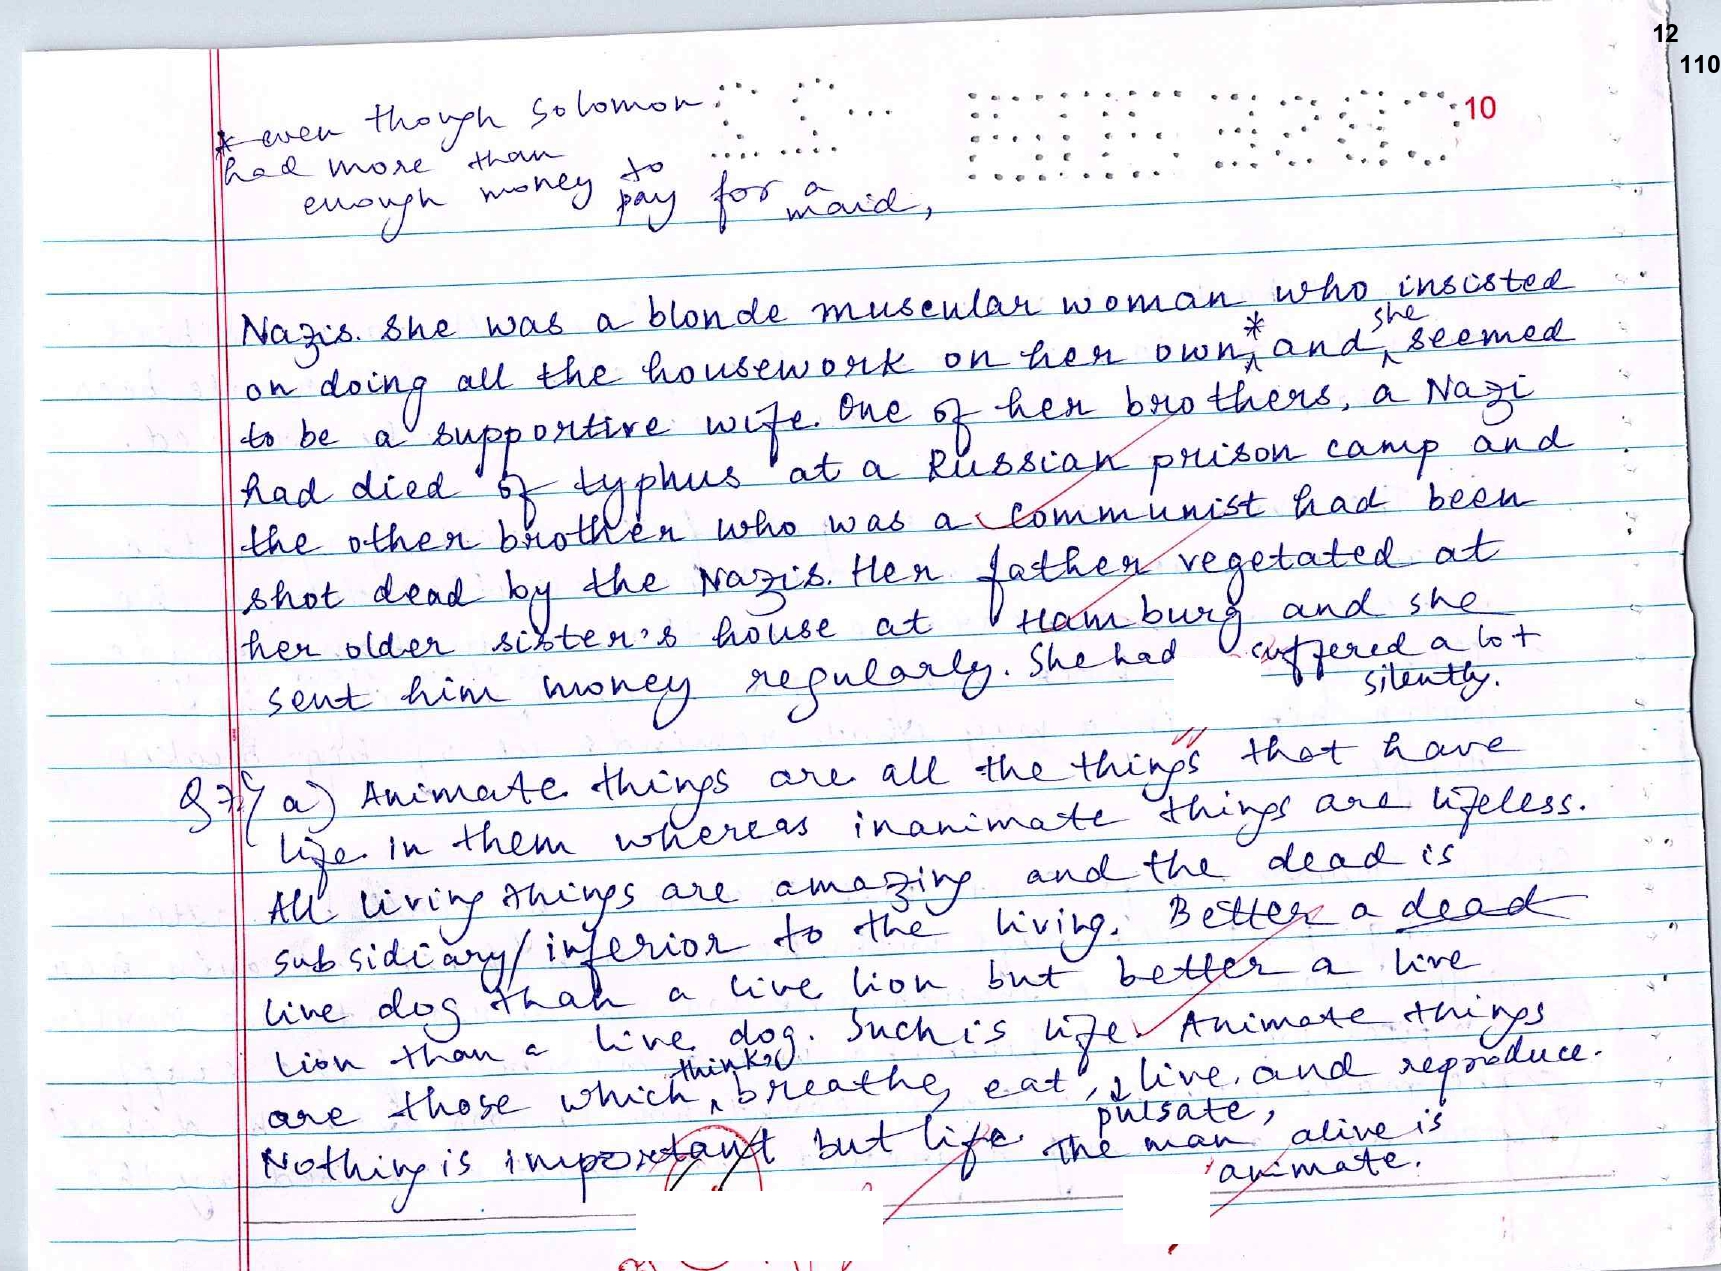 12
110
10
* even though Solomon
had more than
enough money to
pay for a
maid,
Nazis. She was a blonde muscular woman who insisted
on doing all the housework on her own,* and she seemed
to be a supportive wife. One of her brothers, a Nazi
had died of typhus at a Russian prison camp and
the other brother who was a communist had been
shot dead by the Nazis. Her father vegetated at
her older sister's house at Hamburg and she
sent him money regularly. She had suffered a lot
silently.
Q7/ a) Animate things are all the things that have
life in them whereas inanimate things are lifeless.
All living things are amazing and the dead is
subsidiary/inferior to the living. Better a dead
live dog than a live lion but better a live
lion than a live dog. Such is life. Animate things
are those which think, breathe, eat, live, and reproduce.
pulsate,
Nothing is important but life. The man alive is
animate.